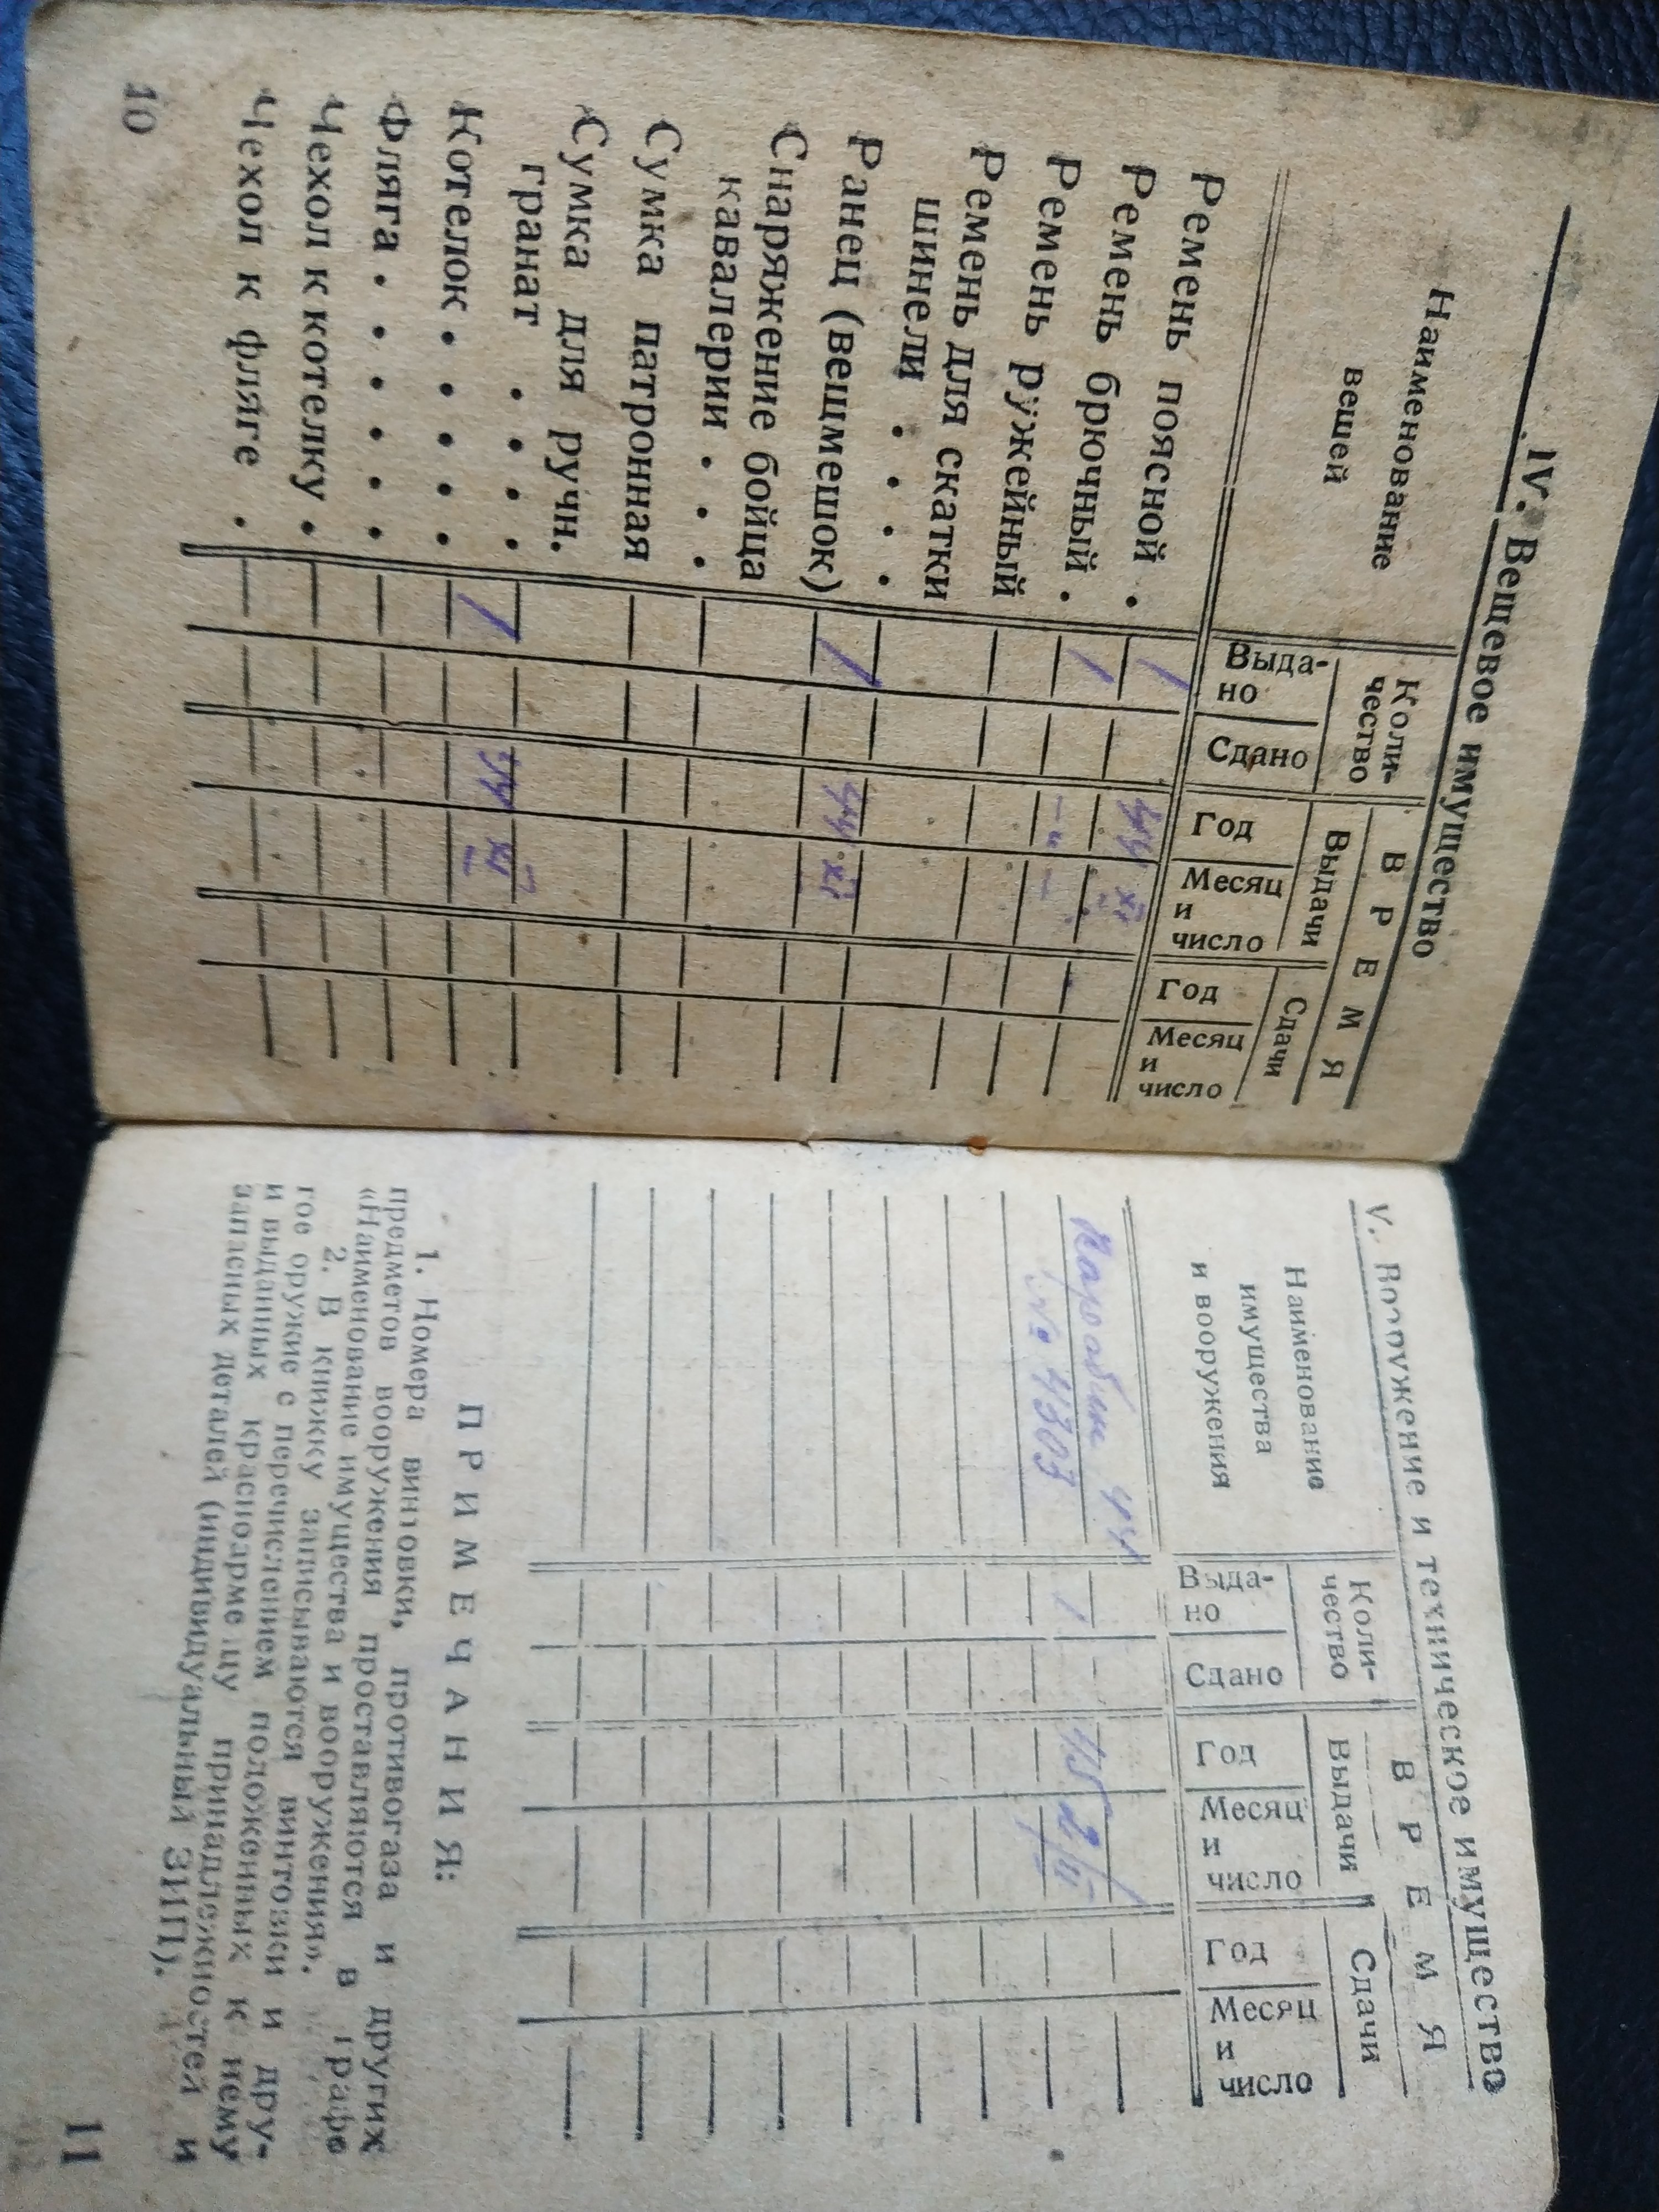 IV. Вещевое имущество
Наименование
вещей
Коли-
чество
ВРЕМЯ
Выдачи
Сдачи
Выда-
но
Сдано
Год
Месяц
и
число
Год
Месяц
и
число
Ремень поясной . 1 44 XI
Ремень брючный . 1 -"-
Ремень ружейный
Ремень для скатки
шинели . . . .
Ранец (вещмешок) 1 44 XI
Снаряжение бойца
кавалерии . . .
Сумка патронная
Сумка для ручн.
гранат . . . .
Котелок . . . . 1 44 XI
Фляга . . . . .
Чехол к котелку .
Чехол к фляге .
10
V. Вооружение и техническое имущество
Наименование
имущества
и вооружения
Коли-
чество
ВРЕМЯ
Выдачи
Сдачи
Выда-
но
Сдано
Год
Месяц
и
число
Год
Месяц
и
число
Карабин 44 1 - 45 2/II
№ 4303
ПРИМЕЧАНИЯ:
1. Номера винтовки, противогаза и других
предметов вооружения проставляются в графе
«Наименование имущества и вооружения».
2. В книжку записываются винтовки и дру-
гое оружие с перечислением положенных к нему
и выданных красноармейцу принадлежностей и
запасных деталей (индивидуальный ЗИП).
11